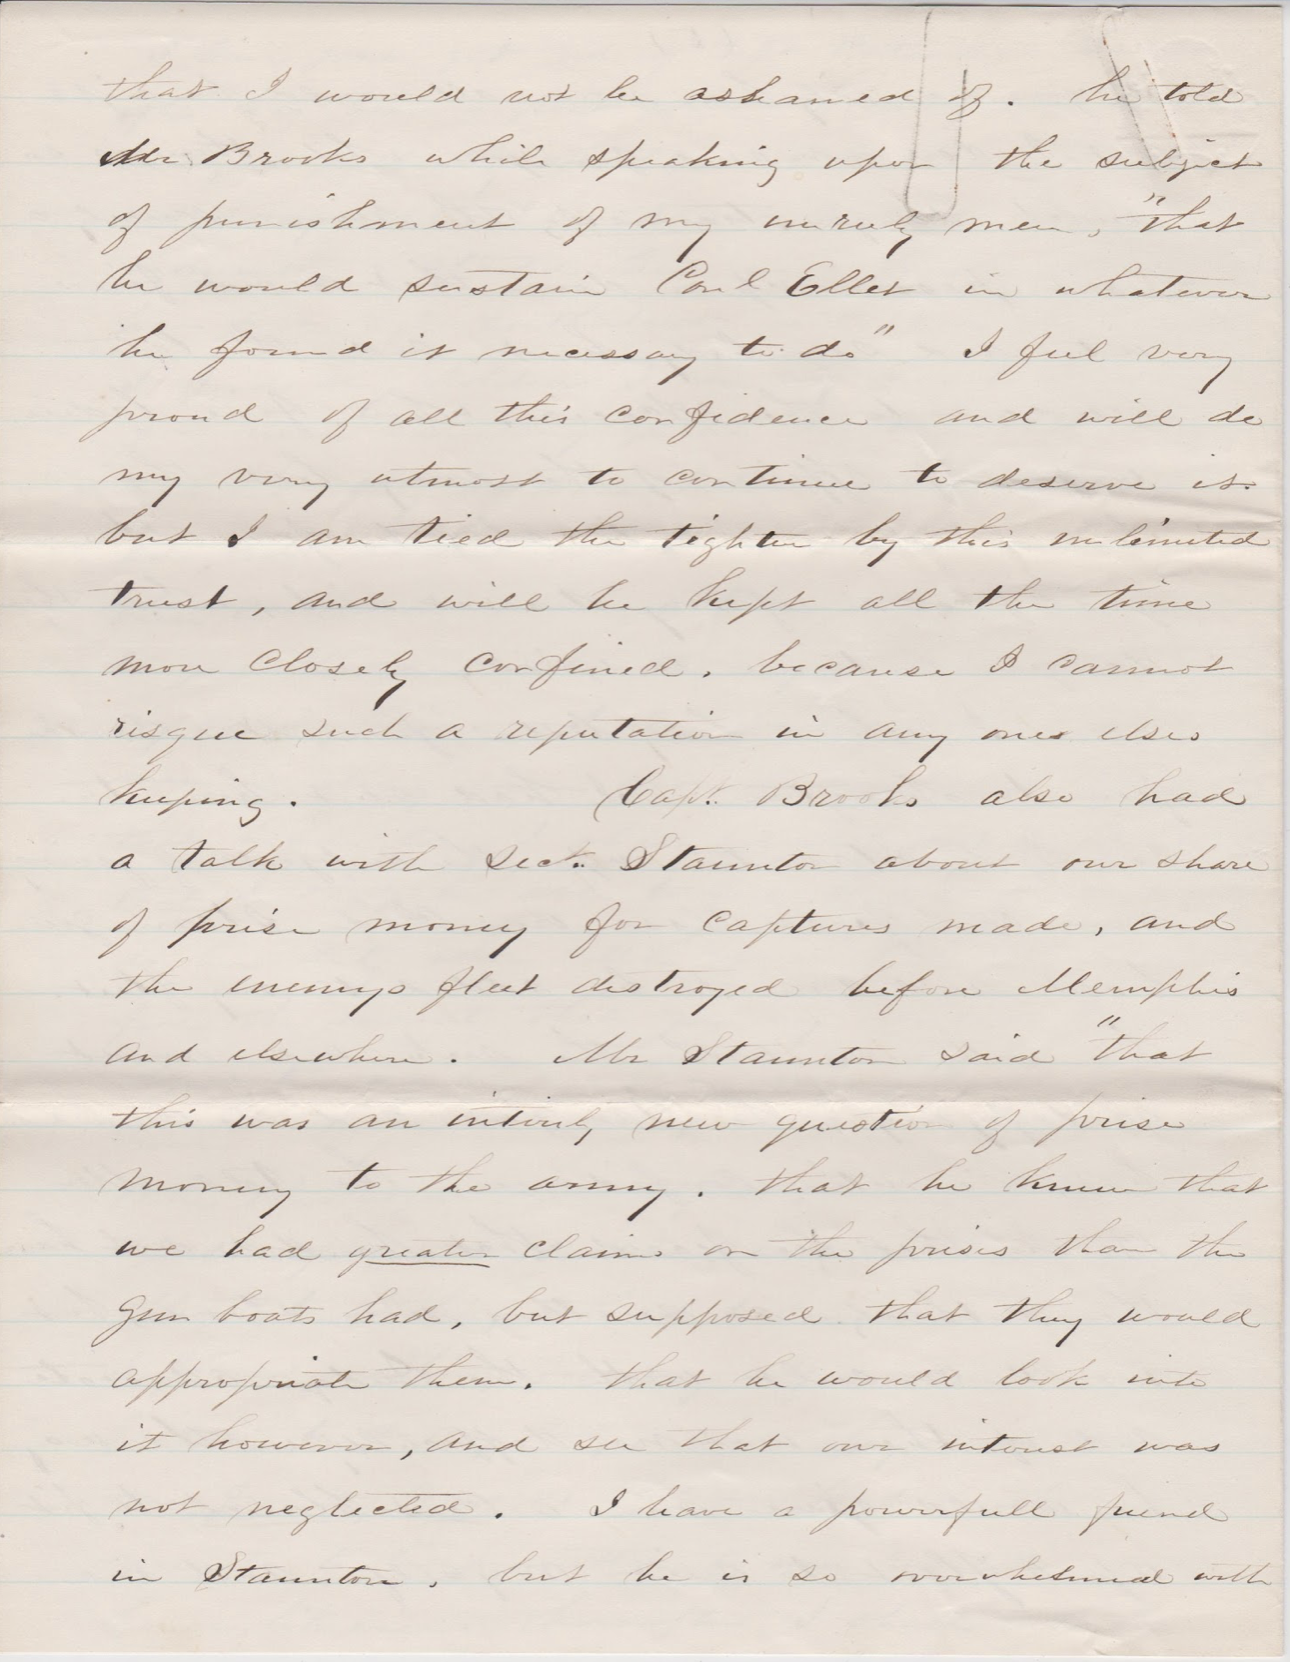 that I would not be ashamed of. he told
Mr. Brooks while speaking upon the subject
of punishment of my unruly men, "that
he would sustain Conl Ellet in whatever
he found it necessary to do" I feel very
proud of all this confidence and will do
my very utmost to continue to deserve it.
but I am tied the tighter by this unlimited
trust, and will be kept all the time
more closely confined. because I cannot
risque such a reputation in any ones elses
keeping. Capt. Brooks also had
a talk with Sect. Staunton about our share
of prise money for captures made, and
the enemys fleet destroyed before Memphis
and elsewhere. Mr Staunton said "that
this was an intirely new question of prise
money to the army. that he knew that
we had greater claims on the prises than the
gun boats had, but supposed that they would
appropriate them. that he would look into
it however, and see that our interest was
not neglected. I have a powerfull friend
in Staunton. but he is so overwhelmed with